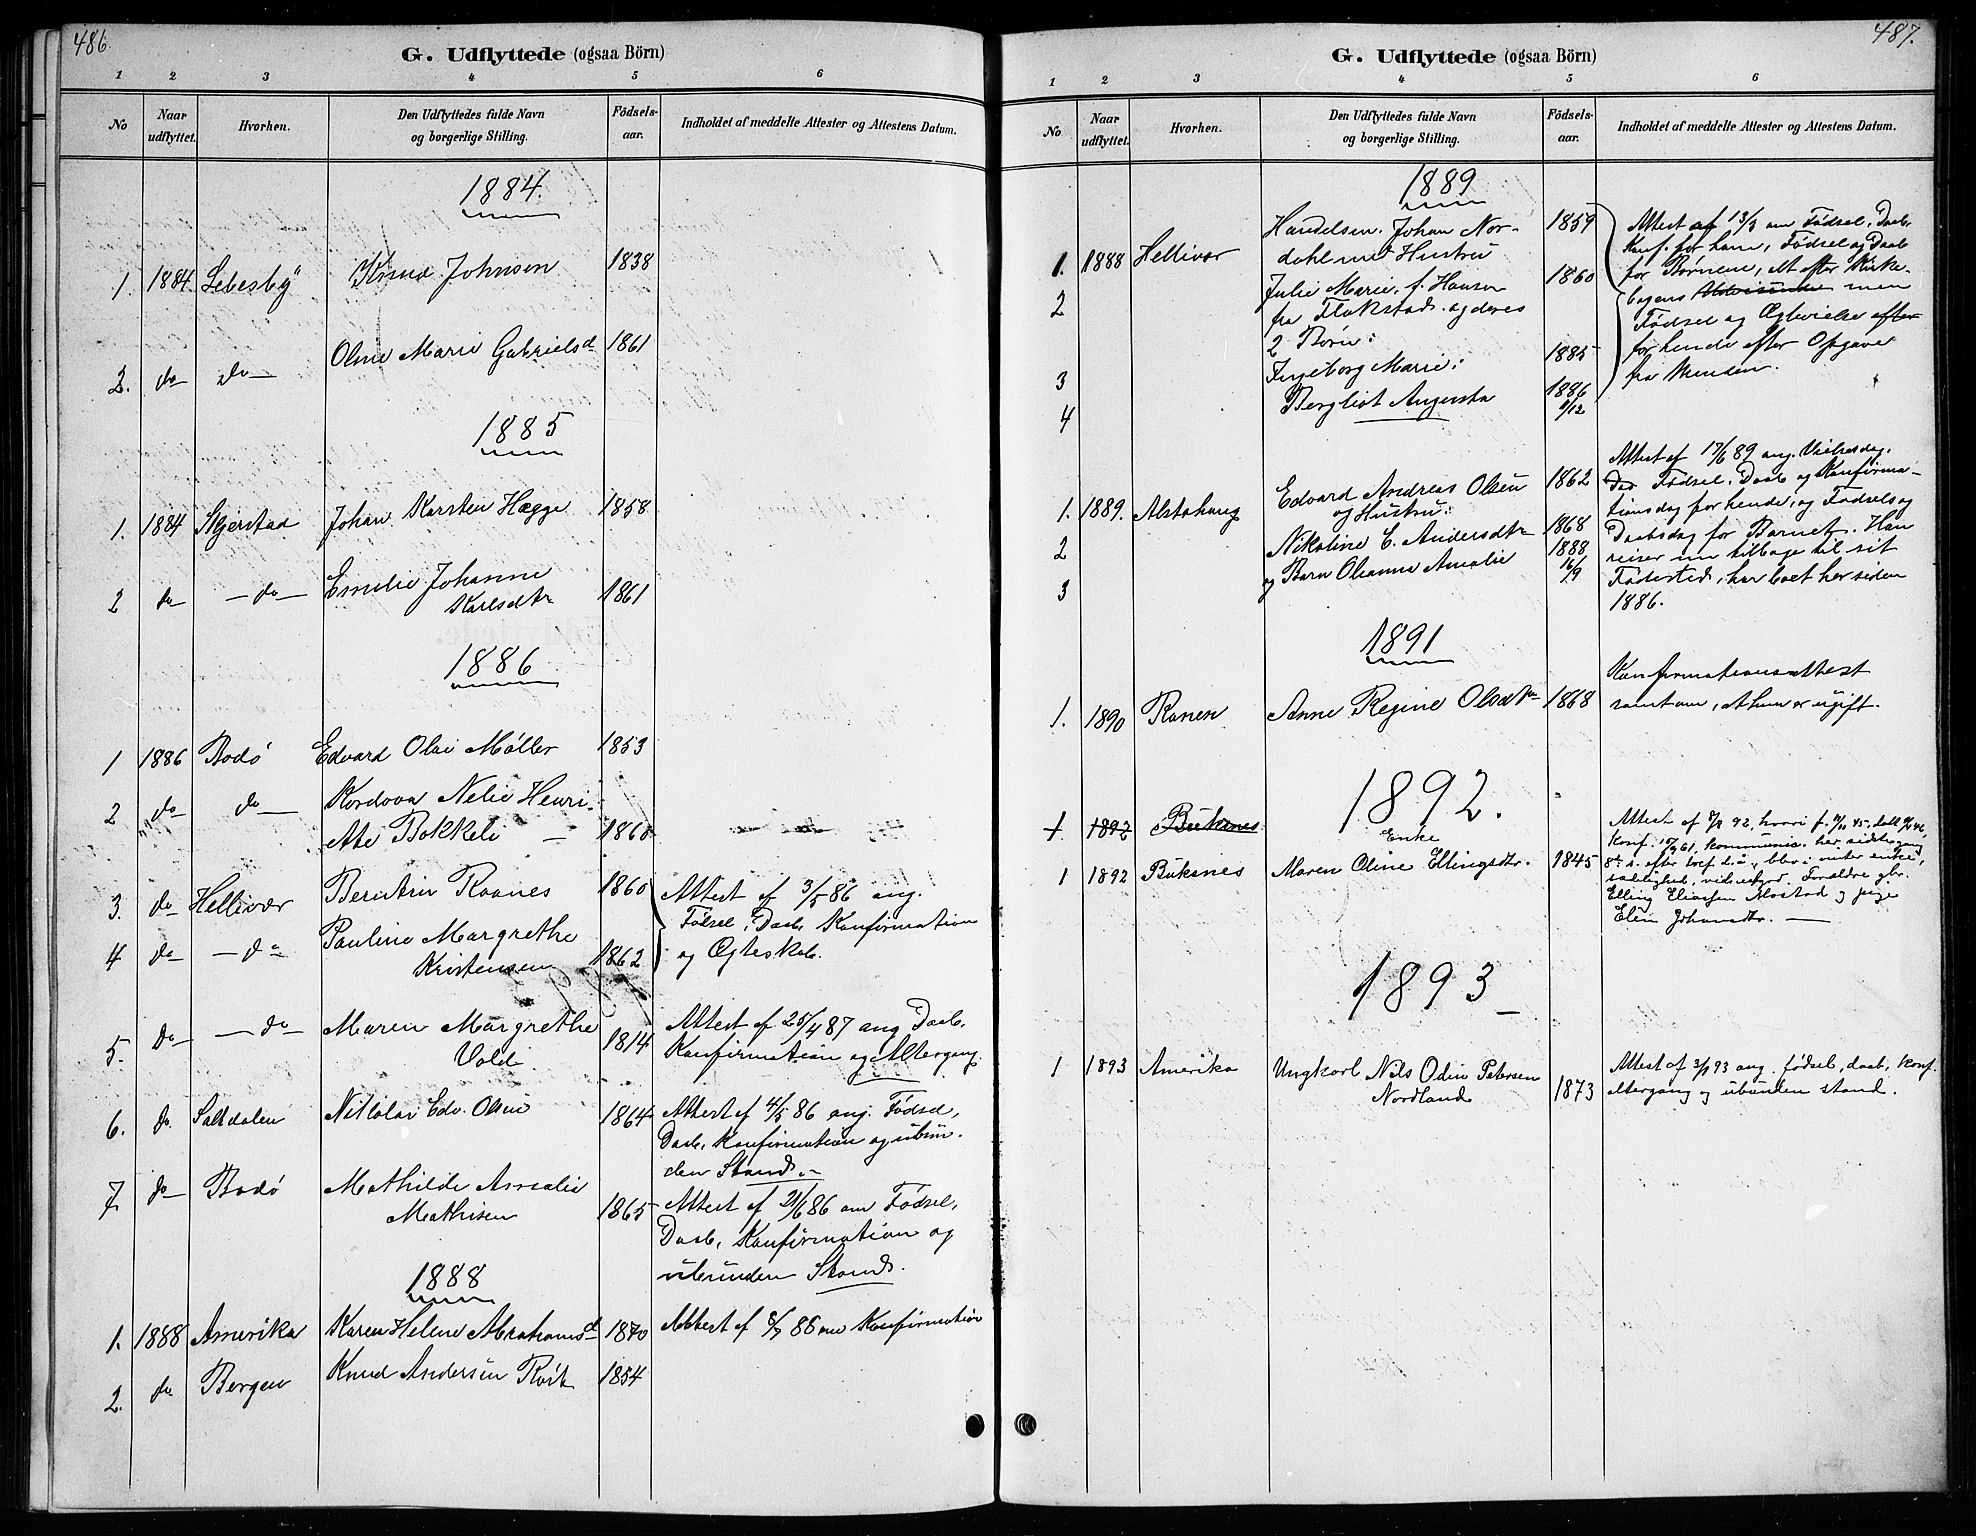 486.
G. Udflyttede (ogsaa Börn)
1 2 3 4 5 6
No Naar udflyttet. Hvorhen. Den Udflyttedes fulde Navn og borgerlige Stilling. Födsels-aar. Indholdet af meddelte Attester og Attestens Datum.
1884.
1. 1884. Lebesby Knud Johnsen 1838
2. do do Oline Marie Gabrielsd 1861
1885
1. 1884 Stjerstad Johan Karsten Hegge 1858
2 do do Emelie Johanne
Karlsdtr 1861
1886
1 1886 Bodø Edvard Olai Møller 1853
2 do do Kordova Nelie Henri-
ette Bokkeli 1860
3. do Hellivær Berntin Raanes 1860 Attest af 3/5 86 ang.
Fødsel, Daab, Konfirmation
4 do do Pauline Margrethe
Kristensen 1862 og Ægteskab.
5. do do Maren Margrethe
Vold 1814 Attest af 25/4 87 ang Daab,
Konfirmation og Altergang.
6. do Saltdalen Nikolai Edv. Olsen 1864 Attest af 4/5 86 ang. Fødsel,
Daab, Konfirmation og ubun-
den Stand.
7. do Bodø Mathilde Amalie
Mathisen 1865 Attest af 21/6 86 om Fødsel,
Daab, Konfirmation og
ubunden Stand.
1888
1. 1888 Amerika Karen Helene Abrahamsd 1870 Attest af 86 om Konfirmation
2. do Bergen Knud Andersen 1854
487.
G. Udflyttede (ogsaa Börn)
1 2 3 4 5 6
No Naar udflyttet. Hvorhen. Den Udflyttedes fulde Navn og borgerlige Stilling. Födsels-aar. Indholdet af meddelte Attester og Attestens Datum.
1889
1. 1888 Hellivær Handelsm. Johan Nor- 1859
dahl med Hustru
2 Julie Marie, f. Hansen 1860
fra Flakstad og deres
2 Børn:
3 Ingeborg Marie: 1885
4 Bergliot Augusta 1886
9/12
Attest af 13/3 om Fødsel, Daab,
Konf. for ham, Fødsel og Daab
for Børnene, alt efter Kirke-
bogens men
Fødsel og Ægtevielse efter
for hende efter Opgaver
fra Manden.
1. 1889. Alstahaug Edvard Andreas Olsen 1862
og Hustru:
2 Nikoline C. Andersdtr 1868
3 og Barn Oleanna Amalie 1888
16/9
Attest af 17/6 89 ang. Vielsesdag,
Fødsel, Daab og Konfirma-
tionsdag for hende, og Fødsels og
Daabsdag for Barnet. Han
reiser nu tilbage til sit
Fødested, har boet her siden
1886.
1891
1. 1890 Ranen Anne Regine Olsdtr 1868 Konfirmationsattest
samt om, at hun er ugift.
1892.
1 1892 Buksnes
1 1892 Buksnes Enke
Maren Oline Ellingsdtr. 1845
Attest af 92, hvori f. 45, døbt 46,
Konf. 61, kommunic. her, sidstegang
efter blev i vinter enke,
Forældre gbr.
Elling Eliassen Mostad og pige
Elen Johansdtr.
1893
1 1893 Amerika Ungkarl Nils Odin Petersen
Nordland 1873
Attest af 93 ang. fødsel, daab, konf.
altergang og ubunden stand.